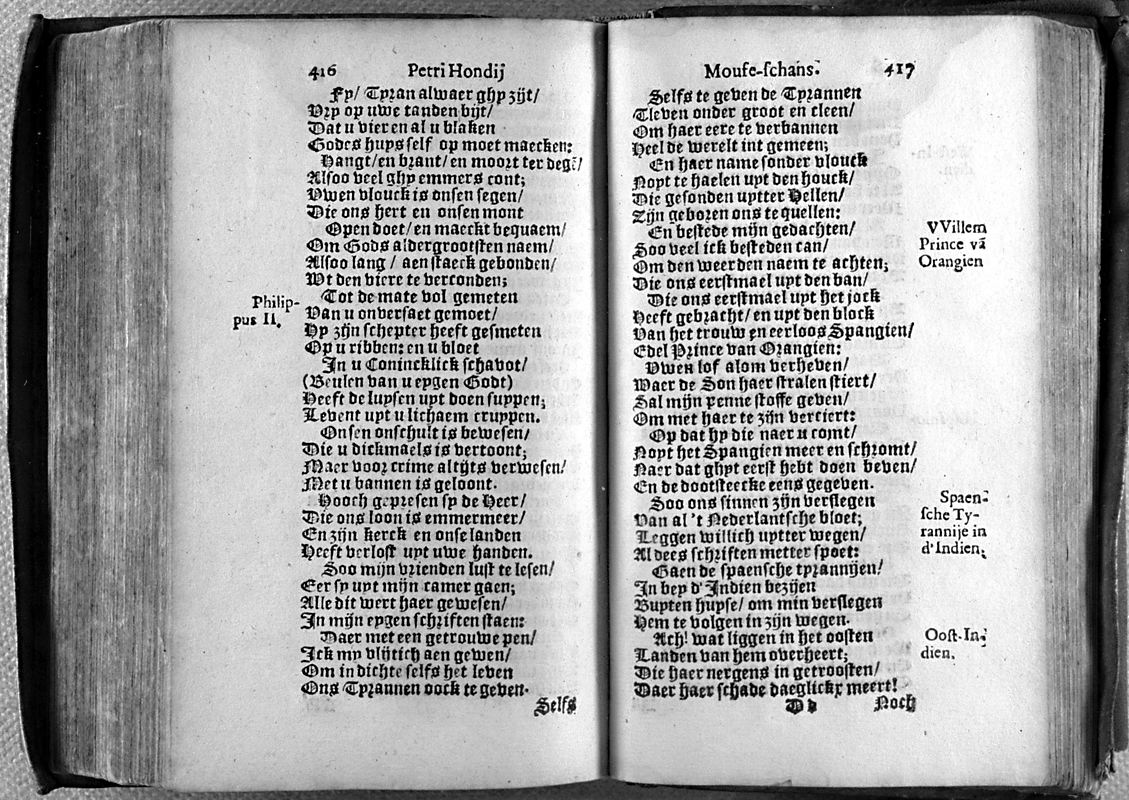 416 Petri Hondij
Fy/ Tyran alwaer ghy zijt/
Vry op uwe tanden bijt/
Dat u vier en al u blaken
Godes huys self op moet maecken:
Hangt/ en brant/ en moort ter degē/
Alsoo veel ghy emmers cont;
Vwen vlouck is onsen segen/
Die ons hert en onsen mont
Open doet/ en maeckt bequaem/
Om Gods aldergrootsten naem/
Alsoo lang/ aen staeck gebonden/
Wt den viere te verconden;
Philip-
pus II.
Tot de mate vol gemeten
Van u onversaet gemoet/
Hy zijn schepter heeft gesmeten
Op u ribben: en u bloet
In u Conincklick schavot/
(Beulen van u eygen Godt)
Heeft de luysen uyt doen suypen;
Levent uyt u lichaem cruypen.
Onsen onschult is bewesen/
Die u dickmaels is vertoont;
Maer voor crime altijts verwesen/
Met u bannen is geloont.
Hooch gepresen sy de Heer/
Die ons loon is emmermeer/
En zijn kerck en onse landen
Heeft verlost uyt uwe handen.
Soo mijn vrienden lust te lesen/
Eer sy uyt mijn camer gaen;
Alle dit wert haer gewesen/
In mijn eygen schriften staen:
Daer met een getrouwe pen/
Ick my vlijtich aen gewen/
Om in dichte selfs het leven
Ons Tyrannen oock te geven.
Selfs
Mouse-schans. 417
Selfs te geven de Tyrannen
Tleven onder groot en cleen/
Om haer eere te verbannen
Heel de werelt int gemeen;
En haer name sonder vlouck
Noyt te haelen uyt den houck/
Die gesonden uytter Hellen/
Zijn geboren ons te quellen:
VVillem
Prince vā
Orangien
En bestede mijn gedachten/
Soo veel ick besteden can/
Om den weerden naem te achten;
Die ons eerstmael uyt den ban/
Die ons eerstmael uyt het jock
Heeft gebracht/ en uyt den block
Van het trouw en eerloos Spangien/
Edel Prince van Orangien:
Vwen lof alom verheven/
Waer de Son haer stralen stiert/
Sal mijn penne stoffe geven/
Om met haer te zijn verciert:
Op dat hy die naer u comt/
Noyt het Spangien meer en schromt/
Naer dat ghyt eerst hebt doen beven/
En de dootsteecke eens gegeven.
Spaen-
sche Ty-
rannije in
d'Indien.
Soo ons sinnen zijn verslegen
Van al 't Nederlantsche bloet;
Leggen willich uytter wegen/
Al dees schriften metter spoet:
Gaen de spaensche tyrannijen/
In bey d'Indien bezijen
Buyten huyse/ om min verslegen
Hem te volgen in zijn wegen.
Oost-In-
dien.
Ach! wat liggen in het oosten
Landen van hem overheert;
Die haer nergens in getroosten/
Daer haer schade daeglickx meert!
D d Noch